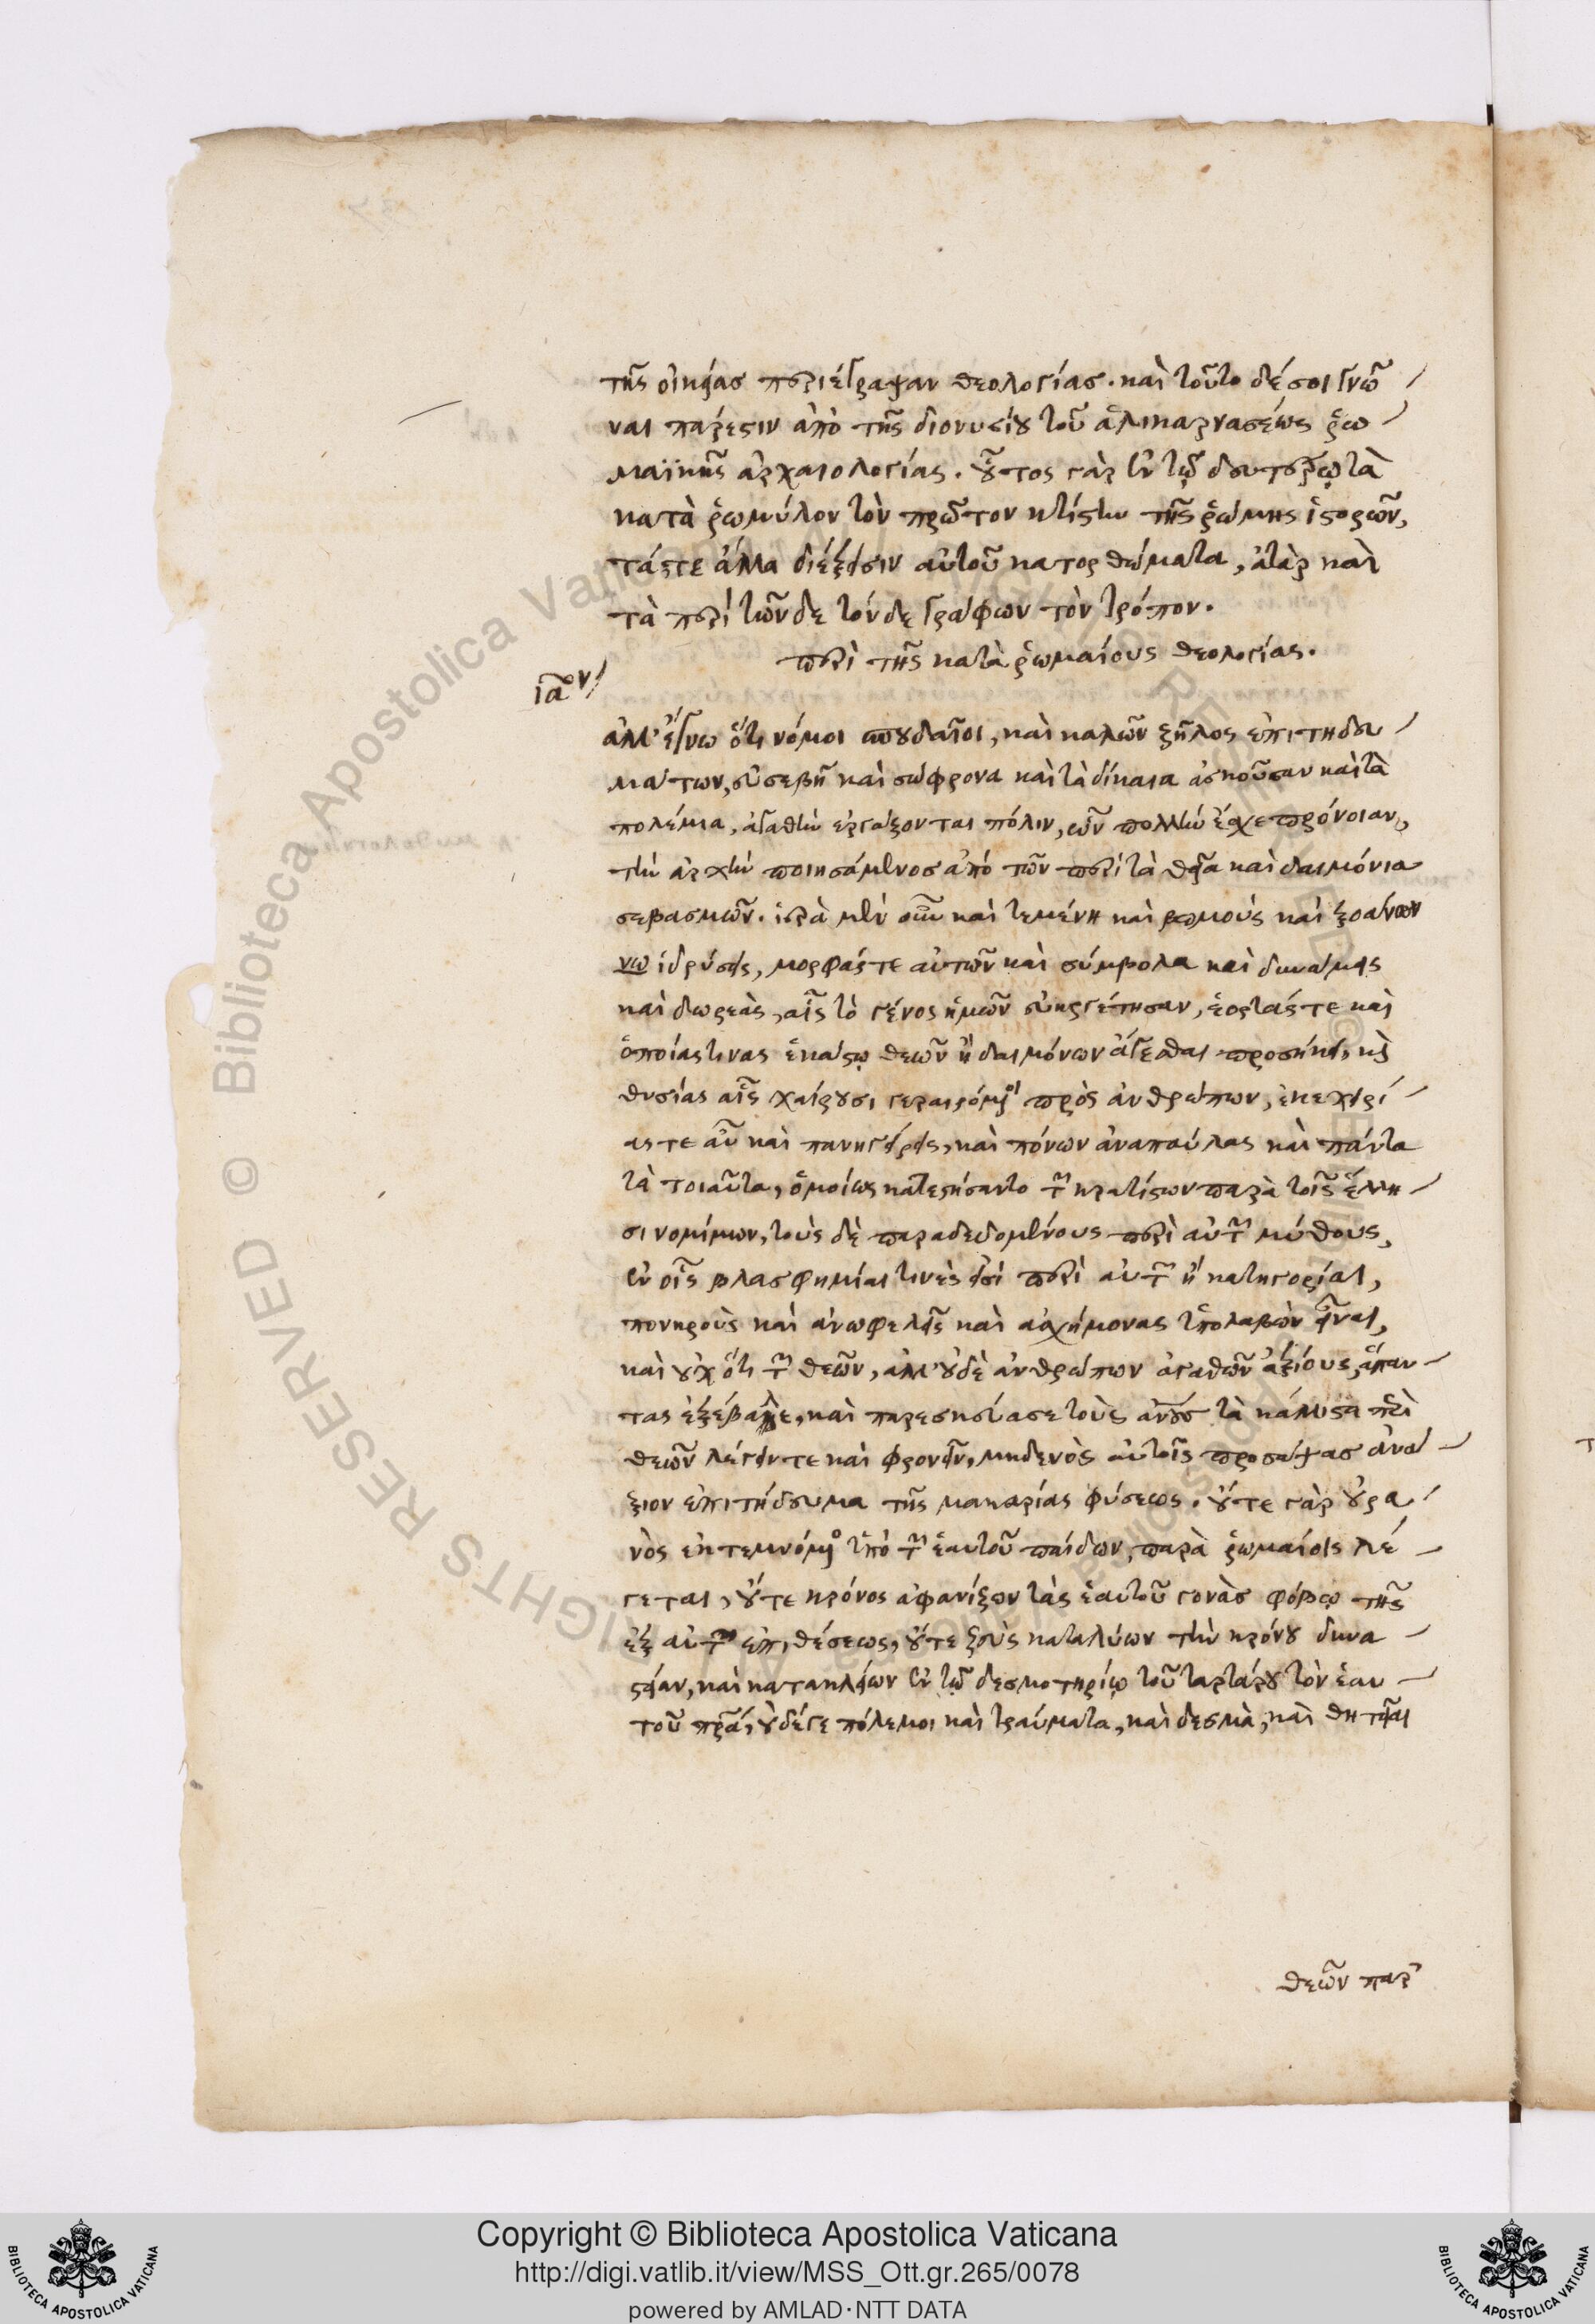 τῆς οἰκείας περιέγραψαν θεολογίας. καὶ τοῦτο δέ σοι γνῶ
ναι πάρεστιν ἀπὸ τῆς διονυσίου τοῦ ἁλικαρνασέως ῥω
μαϊκῆς ἀρχαιολογίας. οὗτος γὰρ ἐν τῷ δευτέρῳ τὰ
κατὰ ῥωμύλον τὸν πρῶτον κτίστην τῆς ῥώμης ἱστορῶν,
τά τε ἄλλα διέξεισιν αὐτοῦ κατορθώματα, ἀτὰρ καὶ
τὰ περὶ τῶνδε τόνδε γράφων τὸν τρόπον.
περὶ τῆς κατὰ ῥωμαίους θεολογίας.
ἀλλ' ἔγνω ὅτι νόμοι σπουδαῖοι, καὶ καλῶν ζῆλος ἐπιτηδευ
μάτων, εὐσεβῆ καὶ σώφρονα καὶ τὰ δίκαια ἀσκοῦσαν καὶ τὰ
πολέμια, ἀγαθὴν ἐργάζονται πόλιν, ὧν πολλὴν ἔσχε πρόνοιαν,
τὴν ἀρχὴν ποιησάμενος ἀπὸ τῶν περὶ τὰ θεῖα καὶ δαιμόνια
σεβασμῶν. ἱερὰ μὲν οὖν καὶ τεμένη καὶ βωμοὺς καὶ ξοάνων
νω ἱδρύσεις, μορφάς τε αὐτῶν καὶ σύμβολα καὶ δυνάμεις
καὶ δωρεὰς, αἷς τὸ γένος ἡμῶν εὐηργέτησαν, ἑορτάς τε καὶ
ὁποίας τινας ἑκάστῳ θεῶν ἢ δαιμόνων ἄγεσθαι προσήκει, κὶ
θυσίας αἷς χαίρουσι γεραιρόμενοι πρὸς ἀνθρώπων, ἐκεχειρί
ας τε αὖ καὶ πανηγύρεις, καὶ πόνων ἀναπαύλας καὶ πάντα
τὰ τοιαῦτα, ὁμοίως κατεστήσαντο τῶν κρατίστων παρὰ τοῖς ἕλλη
σι νομίμων, τοὺς δὲ παραδεδομένους περὶ αὐτῶν μύθους,
ἐν οἷς βλασφημίαι τινὲς εἰσὶ περὶ αὐτῶν ἢ κατηγορίαι,
πονηροὺς καὶ ἀνωφελεῖς καὶ ἀσχήμονας ὑπολαβὼν εἶναι,
καὶ οὐχ ὅτι τῶν θεῶν, ἀλλ' οὐδὲ ἀνθρώπων ἀγαθῶν ἀξίους, ἅπαν
τας ἐξέβαλε, καὶ παρεσκεύασε τοὺς ἀνους τὰ κάλλιστα περὶ
θεῶν λέγειν τε καὶ φρονεῖν, μηδενὸς αὐτοῖς προσάψας ἀνά
ξιον ἐπιτήδευμα τῆς μακαρίας φύσεως. οὔτε γὰρ οὐρα
νὸς ἐκτεμνόμενος ὑπὸ τῶν ἑαυτοῦ παίδων, παρὰ ῥωμαίοις λέ
γεται, οὔτε κρόνος ἀφανίζων τὰς ἑαυτοῦ γονὰς φόβῳ τῆς
ἐξ αὐτῶν ἐπιθέσεως, οὔτε ζεὺς καταλύων τὴν κρόνου δυνα
στείαν, καὶ κατακλείων ἐν τῷ δεσμοτηρίῳ τοῦ ταρτάρου τὸν ἑαυ
τοῦ πρα, οὐδέ γε πόλεμοι καὶ τραύματα, καὶ δεσμὰ, καὶ θητεῖαι
θεῶν παρ'
Copyright © Biblioteca Apostolica Vaticana
http://digi.vatlib.it/view/MSS_Ott.gr.265/0078
powered by AMLAD·NTT DATA